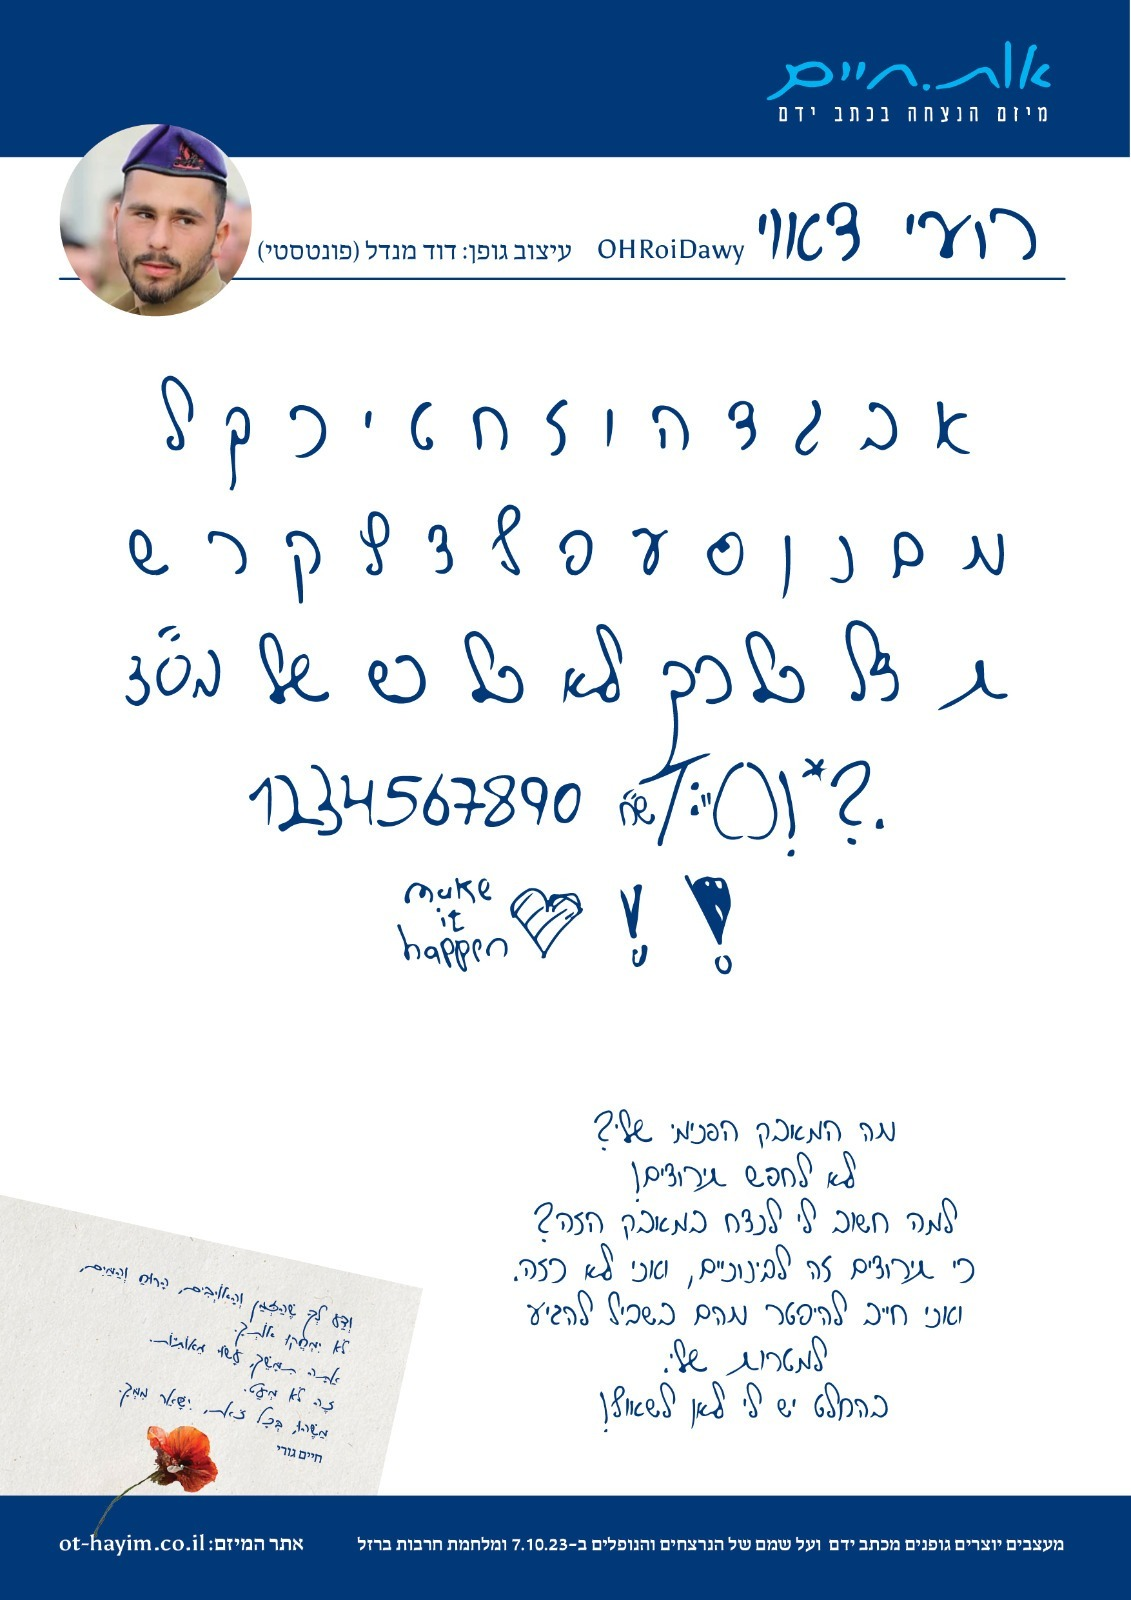 אות.חיים
מיזם הנצחה בכתב ידם
רועי דאווי OHRoiDawy עיצוב גופן: דוד מנדל (פונטסטי)
א ב ג ד ה ו ז ח ט י כ ך ל
מ ם נ ן ס ע פ ף צ ץ ק ר ש
ת צל כלכך לא כל כש של בס״ד
1234567890 / : " () ! * ? .
make
it
happen
מה המאבק הפנימי שלי?
לא לחפש תירוצים!
למה חשוב לי לנצח במאבק הזה?
כי תירוצים זה לבינוניים, ואני לא כזה.
ואני חייב להיפטר מהם בשביל להגיע
למטרות שלי.
בהחלט יש לי לאן לשאוף!
וְדַע לְךָ שֶׁהַזְּמַן וְהָאוֹיְבִים, הָרוּחַ וְהַמַּיִם,
לֹא יִמְחֲקוּ אוֹתְךָ.
אַתָּה תִּמָּשֵׁךְ, עָשׂוּי מֵאוֹתִיּוֹת.
זֶה לֹא מְעַט.
מַשֶּׁהוּ, בְּכָל זֹאת, יִשָּׁאֵר מִמְּךָ.
חיים גורי
מעצבים יוצרים גופנים מכתב ידם ועל שמם של הנרצחים והנופלים ב-7.10.23 ומלחמת חרבות ברזל
אתר המיזם: ot-hayim.co.il